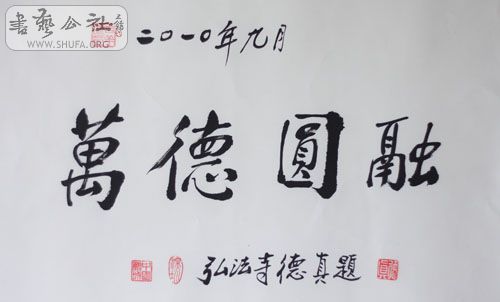 書藝公社
WWW.SHUFA.ORG
二〇一〇年九月
萬德圓融
弘法寺德真題